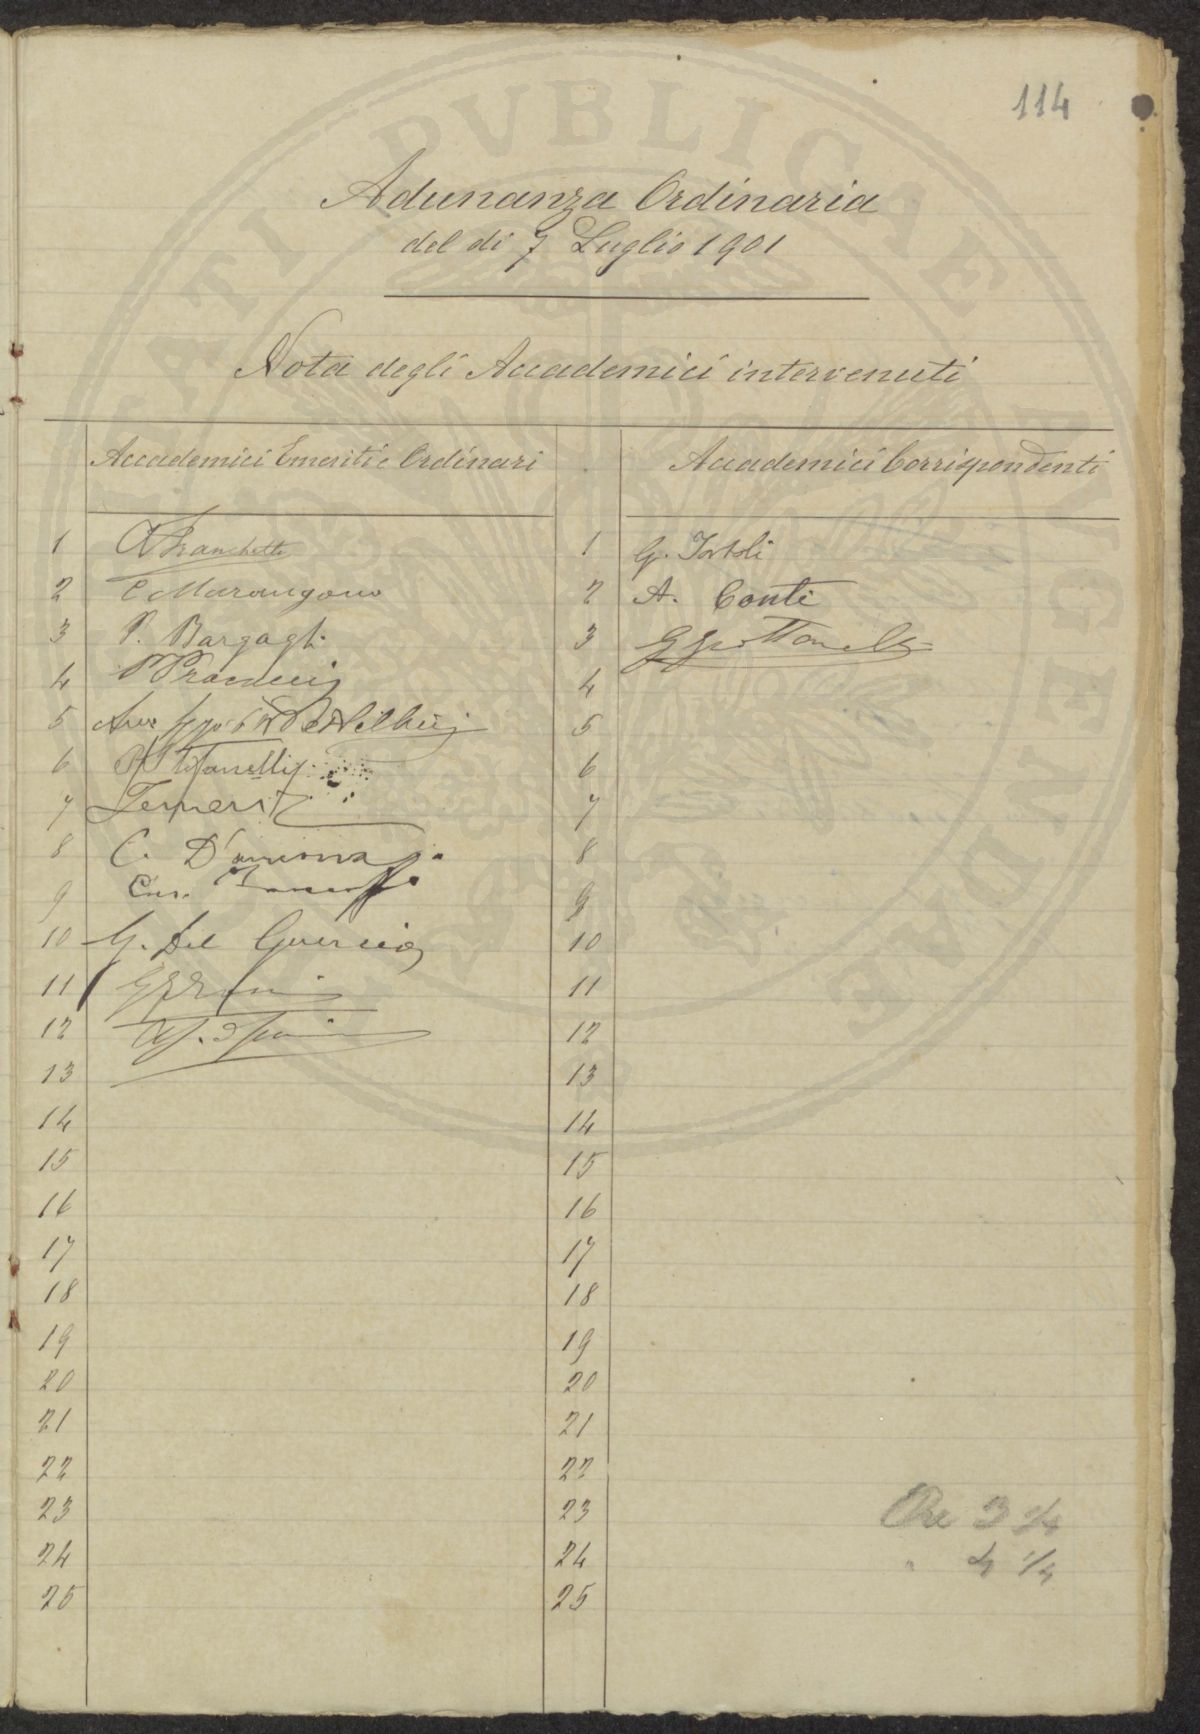 114
Adunanza Ordinaria
del dì 7 Luglio 1901
Nota degli Accademici intervenuti
Accademici Emeriti e Ordinari
Accademici Corrispondenti
1 A Franchetti
2 C Marangoni
3 P. Bargagli
4
5
6 P Stefanelli
7
8 C.
9
10 G. Del Guercio
11
12
13
14
15
16
17
18
19
20
21
22
23
24
25
1 G. Tortoli
2 A. Conti
3
4
5
6
7
8
9
10
11
12
13
14
15
16
17
18
19
20
21
22
23
24
25
Ore 3 3/4
" 4 1/4
PVBLICAE